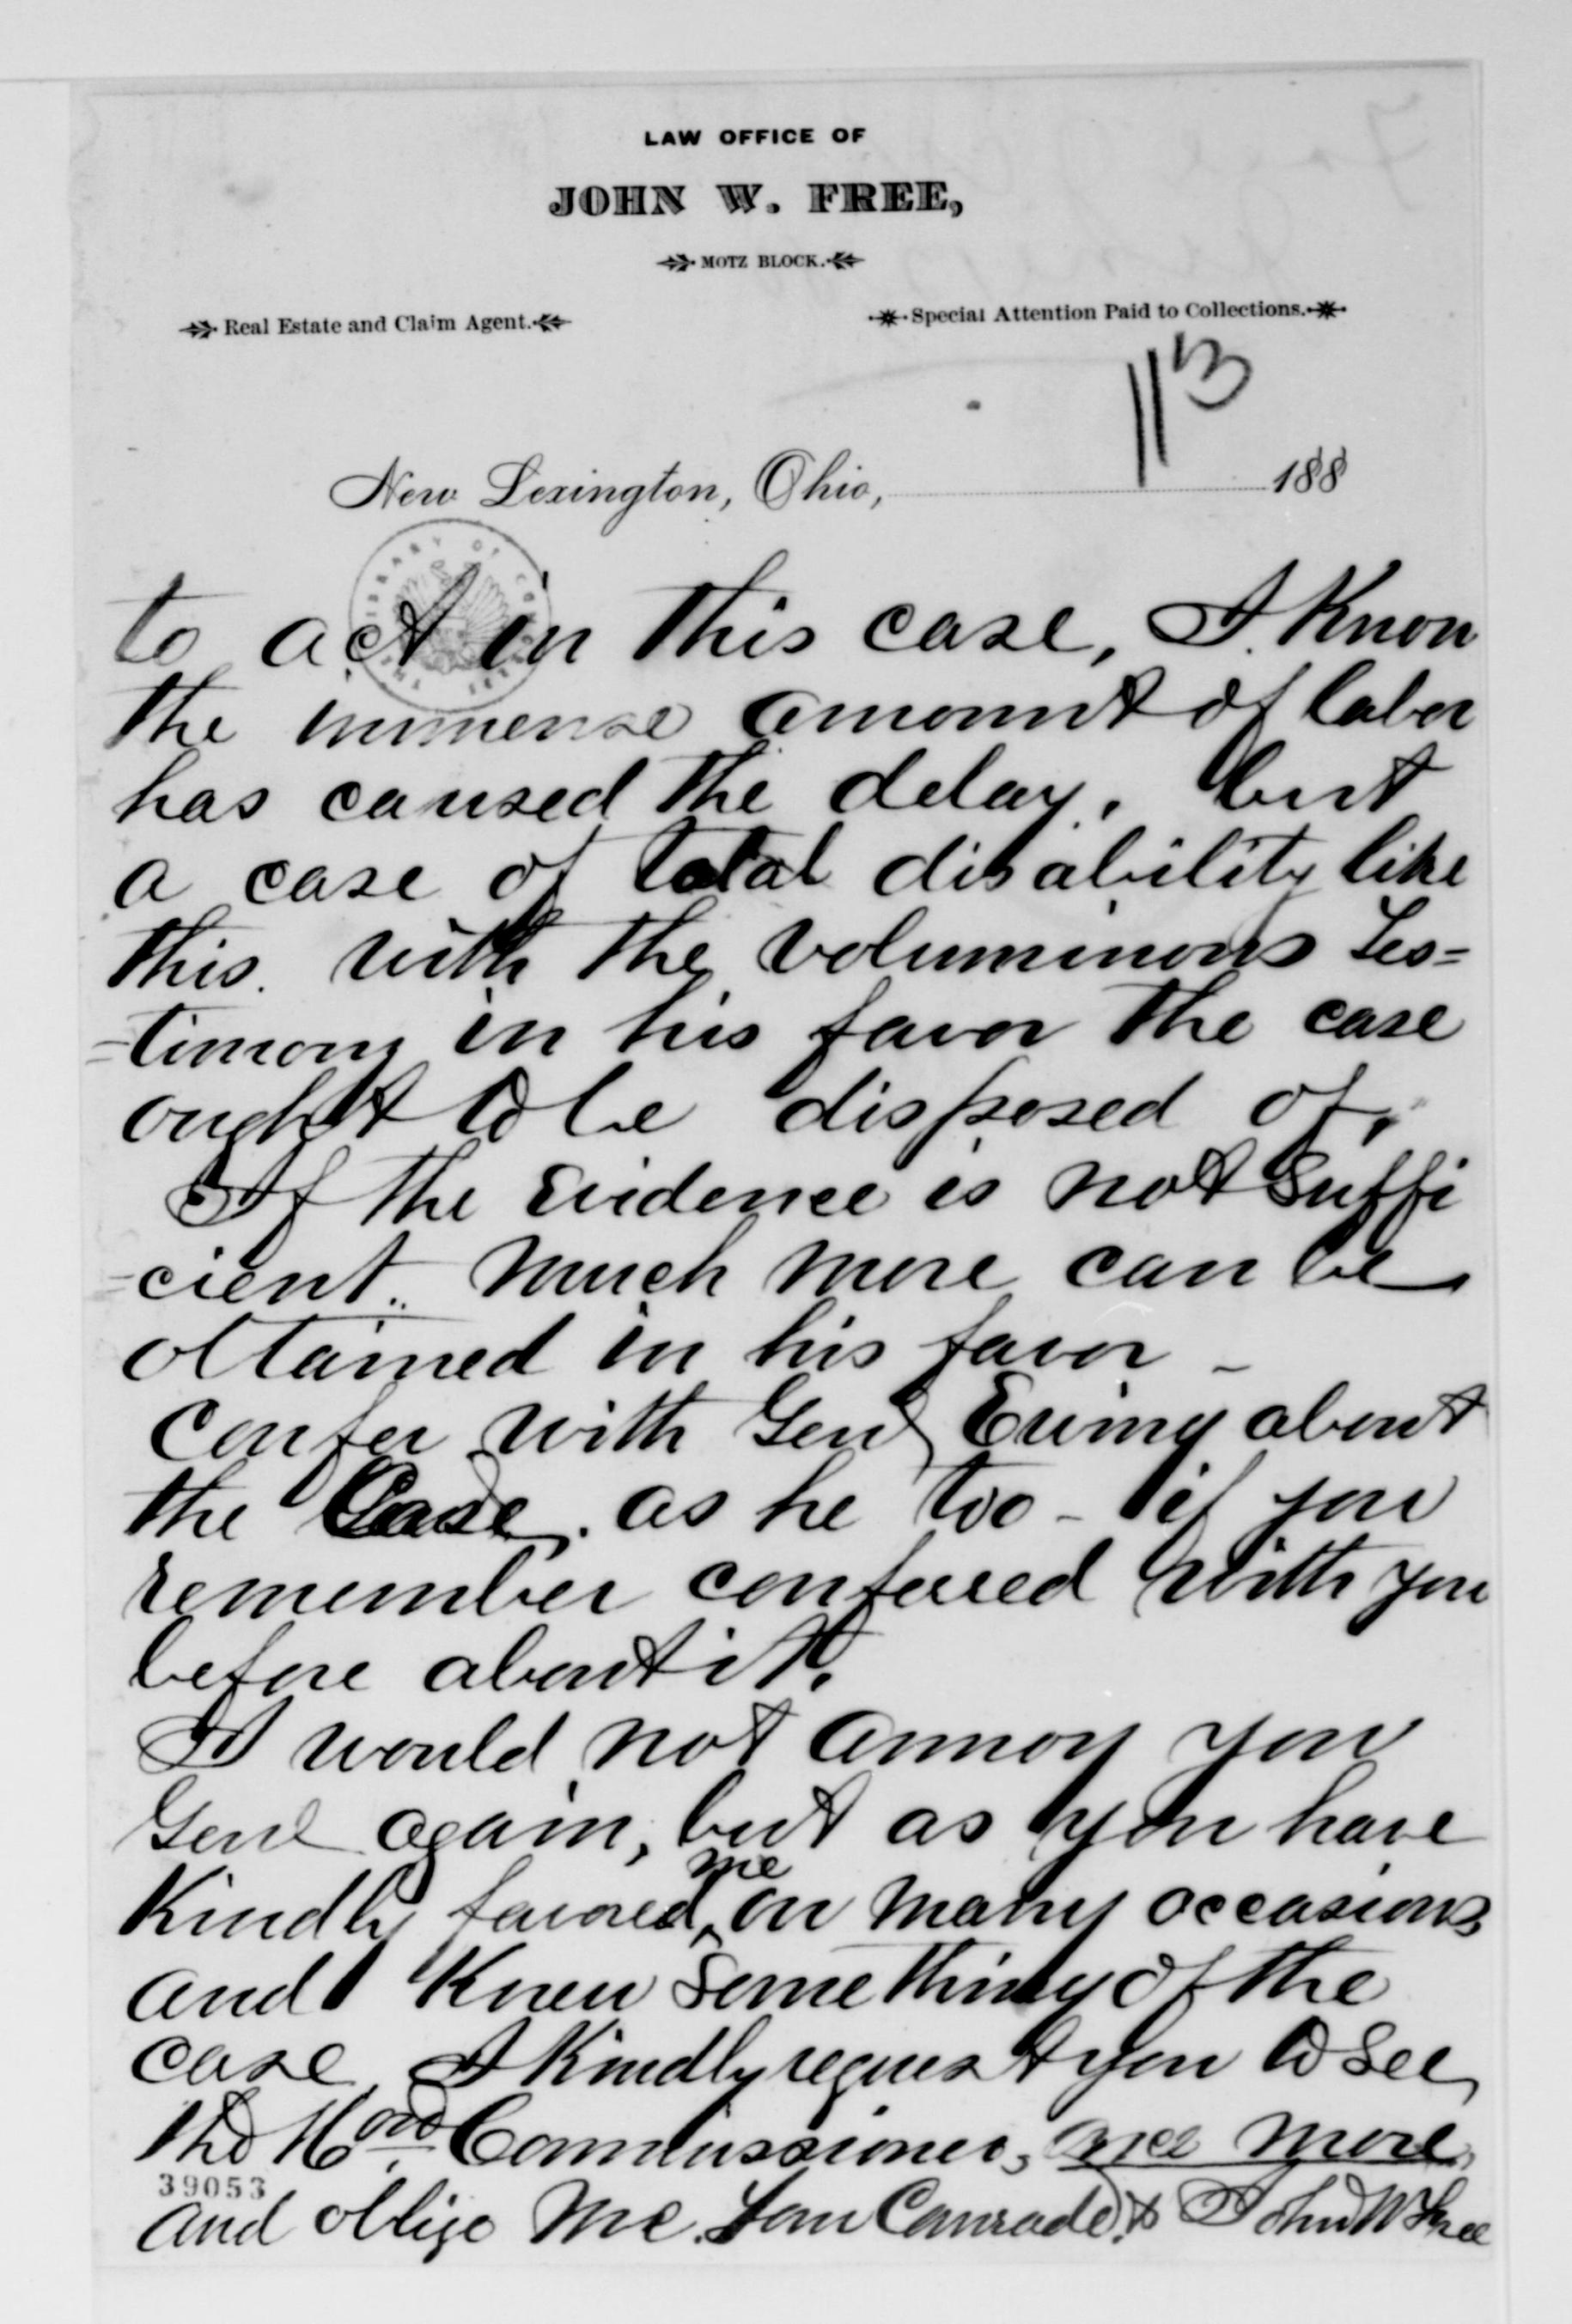 LAW OFFICE OF
JOHN W. FREE,
MOTZ BLOCK.
Real Estate and Claim Agent.
Special Attention Paid to Collections.
113
New Lexington, Ohio, 188
to act in this case, I Know
the immense amount of labor
has caused the delay, but
a case of total disability like
this. with the voluminous Tes=
=timony in his favor the case
ought to be disposed of,
If the evidence is not suffi
=cient. much more can be
obtained in his favor -
Confer with Genl Ewing about
the Case. as he too - if you
remember conferred with you
before about it.
I would not annoy you
Genl again, but as you have
Kindly favored me on many occasions
and Knew something of the
case, I Kindly request you to see
the Hon. Commissioner, once more,
39053
and oblige me. Comrade, John W Free